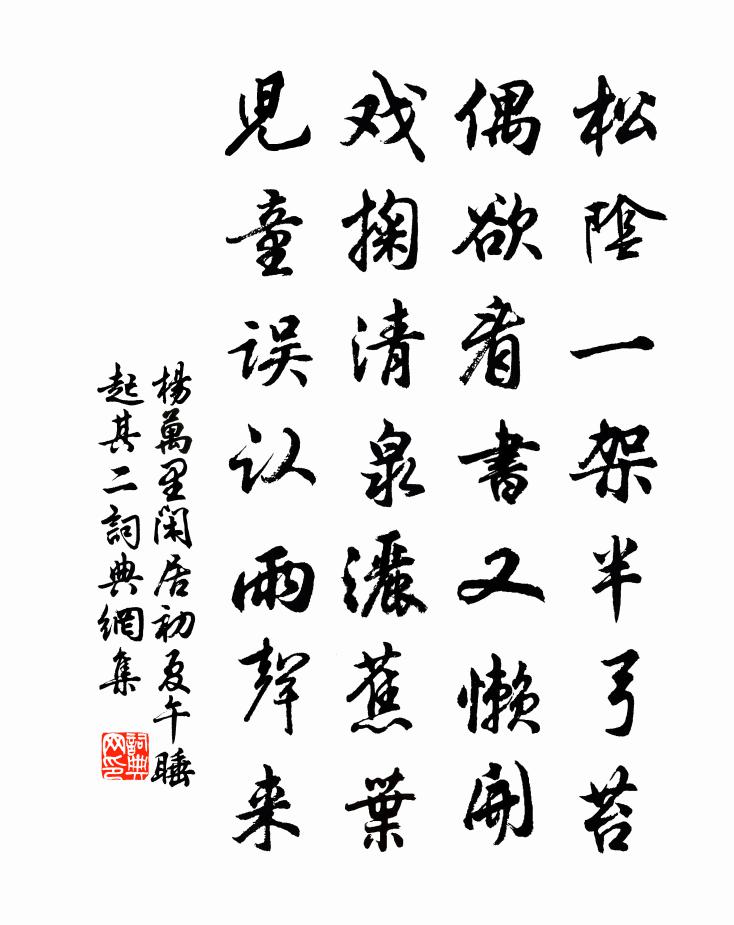 松陰一架半弓苔
偶欲看書又懶開
戏掬清泉灑蕉葉
児童误认雨聲来
楊萬里閑居初夏午睡
起其二詞典網集
詞典
网印